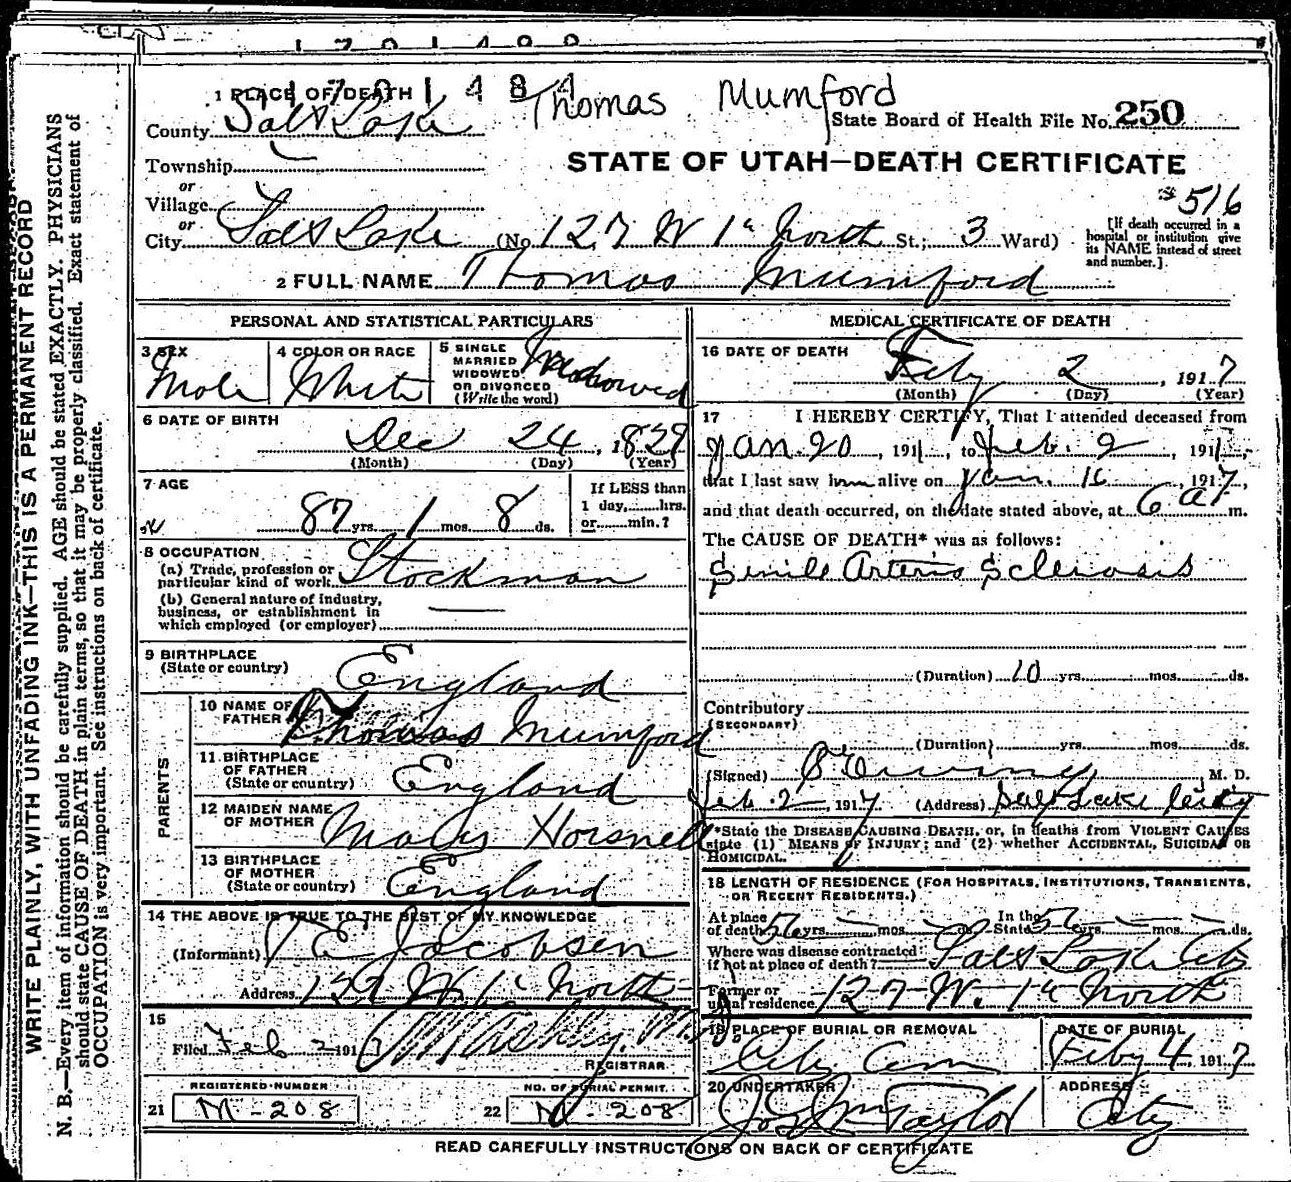 1701488
1 PLACE OF DEATH 1701484 Thomas Mumford
County Salt Lake State Board of Health File No. 250
Township
or
Village
STATE OF UTAH—DEATH CERTIFICATE
516
or
City Salt Lake (No 127 W 1st North St.; 3 Ward)
[If death occurred in a
hospital or institution give
its NAME instead of street
and number.]
2 FULL NAME Thomas Mumford
PERSONAL AND STATISTICAL PARTICULARS
3 SEX Male
4 COLOR OR RACE White
5 SINGLE
MARRIED
WIDOWED
OR DIVORCED
(Write the word) Widowed
6 DATE OF BIRTH
Dec 24, 1829
(Month) (Day) (Year)
7 AGE
87 yrs. 1 mos. 8 ds.
If LESS than
1 day, hrs.
or min.?
8 OCCUPATION
(a) Trade, profession or
particular kind of work Stockman
(b) General nature of industry,
business, or establishment in
which employed (or employer)
9 BIRTHPLACE
(State or country) England
PARENTS
10 NAME OF
FATHER Thomas Mumford
11 BIRTHPLACE
OF FATHER
(State or country) England
12 MAIDEN NAME
OF MOTHER Mary Horsnell
13 BIRTHPLACE
OF MOTHER
(State or country) England
14 THE ABOVE IS TRUE TO THE BEST OF MY KNOWLEDGE
(Informant) E Jacobsen
Address 127 W 1st North
15
Filed Feb 2 1917
REGISTRAR
REGISTERED NUMBER
21 M-208
NO. OF BURIAL PERMIT
22 M-208
MEDICAL CERTIFICATE OF DEATH
16 DATE OF DEATH
Feby 2, 1917
(Month) (Day) (Year)
17 I HEREBY CERTIFY, That I attended deceased from
Jan 20, 191, to Feb. 2, 191,
that I last saw him alive on Jan. 16, 1917,
and that death occurred, on the date stated above, at 6 a m.
The CAUSE OF DEATH* was as follows:
Senile Arterio Sclerosis
(Duration) 10 yrs. mos. ds.
Contributory
(SECONDARY)
(Duration) yrs. mos. ds.
(Signed) Ewing, M. D.
Feb 2, 1917 (Address) Salt Lake City
*State the DISEASE CAUSING DEATH, or, in deaths from VIOLENT CAUSES
state (1) MEANS OF INJURY; and (2) whether ACCIDENTAL, SUICIDAL OR
HOMICIDAL.
18 LENGTH OF RESIDENCE (FOR HOSPITALS, INSTITUTIONS, TRANSIENTS,
OR RECENT RESIDENTS.)
At place
of death 56 yrs. mos. ds. In the
State 56 yrs. mos. ds.
Where was disease contracted
if not at place of death? Salt Lake City
Former or
usual residence 127 W. 1st North
19 PLACE OF BURIAL OR REMOVAL
City Cem
DATE OF BURIAL
Feby 4, 1917
20 UNDERTAKER
Jos Wm Taylor
ADDRESS
City
READ CAREFULLY INSTRUCTIONS ON BACK OF CERTIFICATE
WRITE PLAINLY, WITH UNFADING INK—THIS IS A PERMANENT RECORD
N. B.—Every item of information should be carefully supplied. AGE should be stated EXACTLY. PHYSICIANS
should state CAUSE OF DEATH in plain terms, so that it may be properly classified. Exact statement of
OCCUPATION is very important. See instructions on back of certificate.